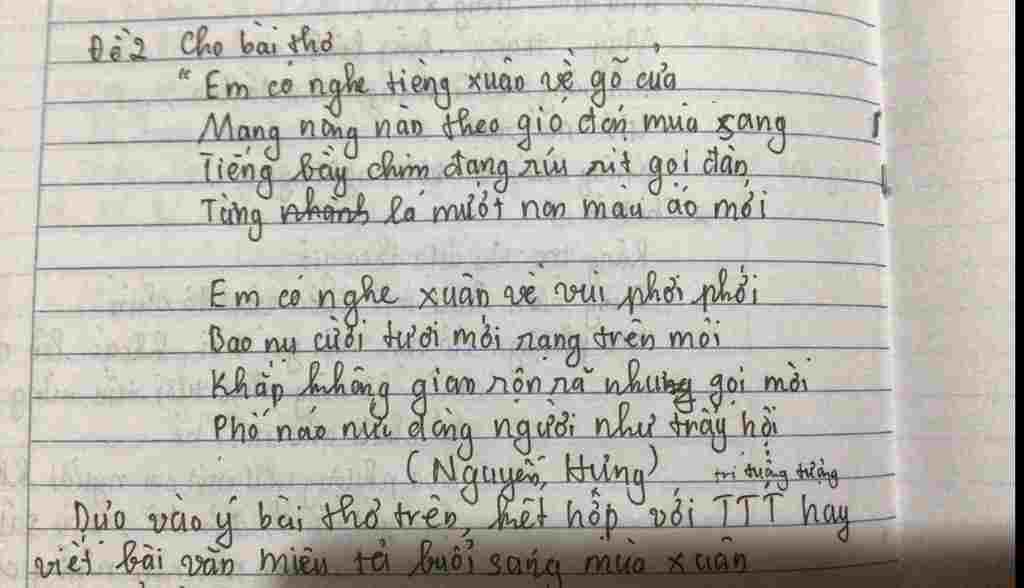 Đề 2 Cho bài thơ
"Em có nghe tiếng xuân về gõ cửa
Mang nồng nàn theo gió đón mùa sang
Tiếng bầy chim đang ríu rít gọi đàn
Từng nhành lá mướt non màu áo mới
Em có nghe xuân về vui phơi phới
Bao nụ cười tươi mới rạng trên môi
Khắp không gian rộn rã những gọi mời
Phố náo nức dòng người như trẩy hội
(Nguyễn Hưng)
trí tưởng tượng
Dựa vào ý bài thơ trên, kết hợp với TTT hay
viết bài văn miêu tả buổi sáng mùa xuân